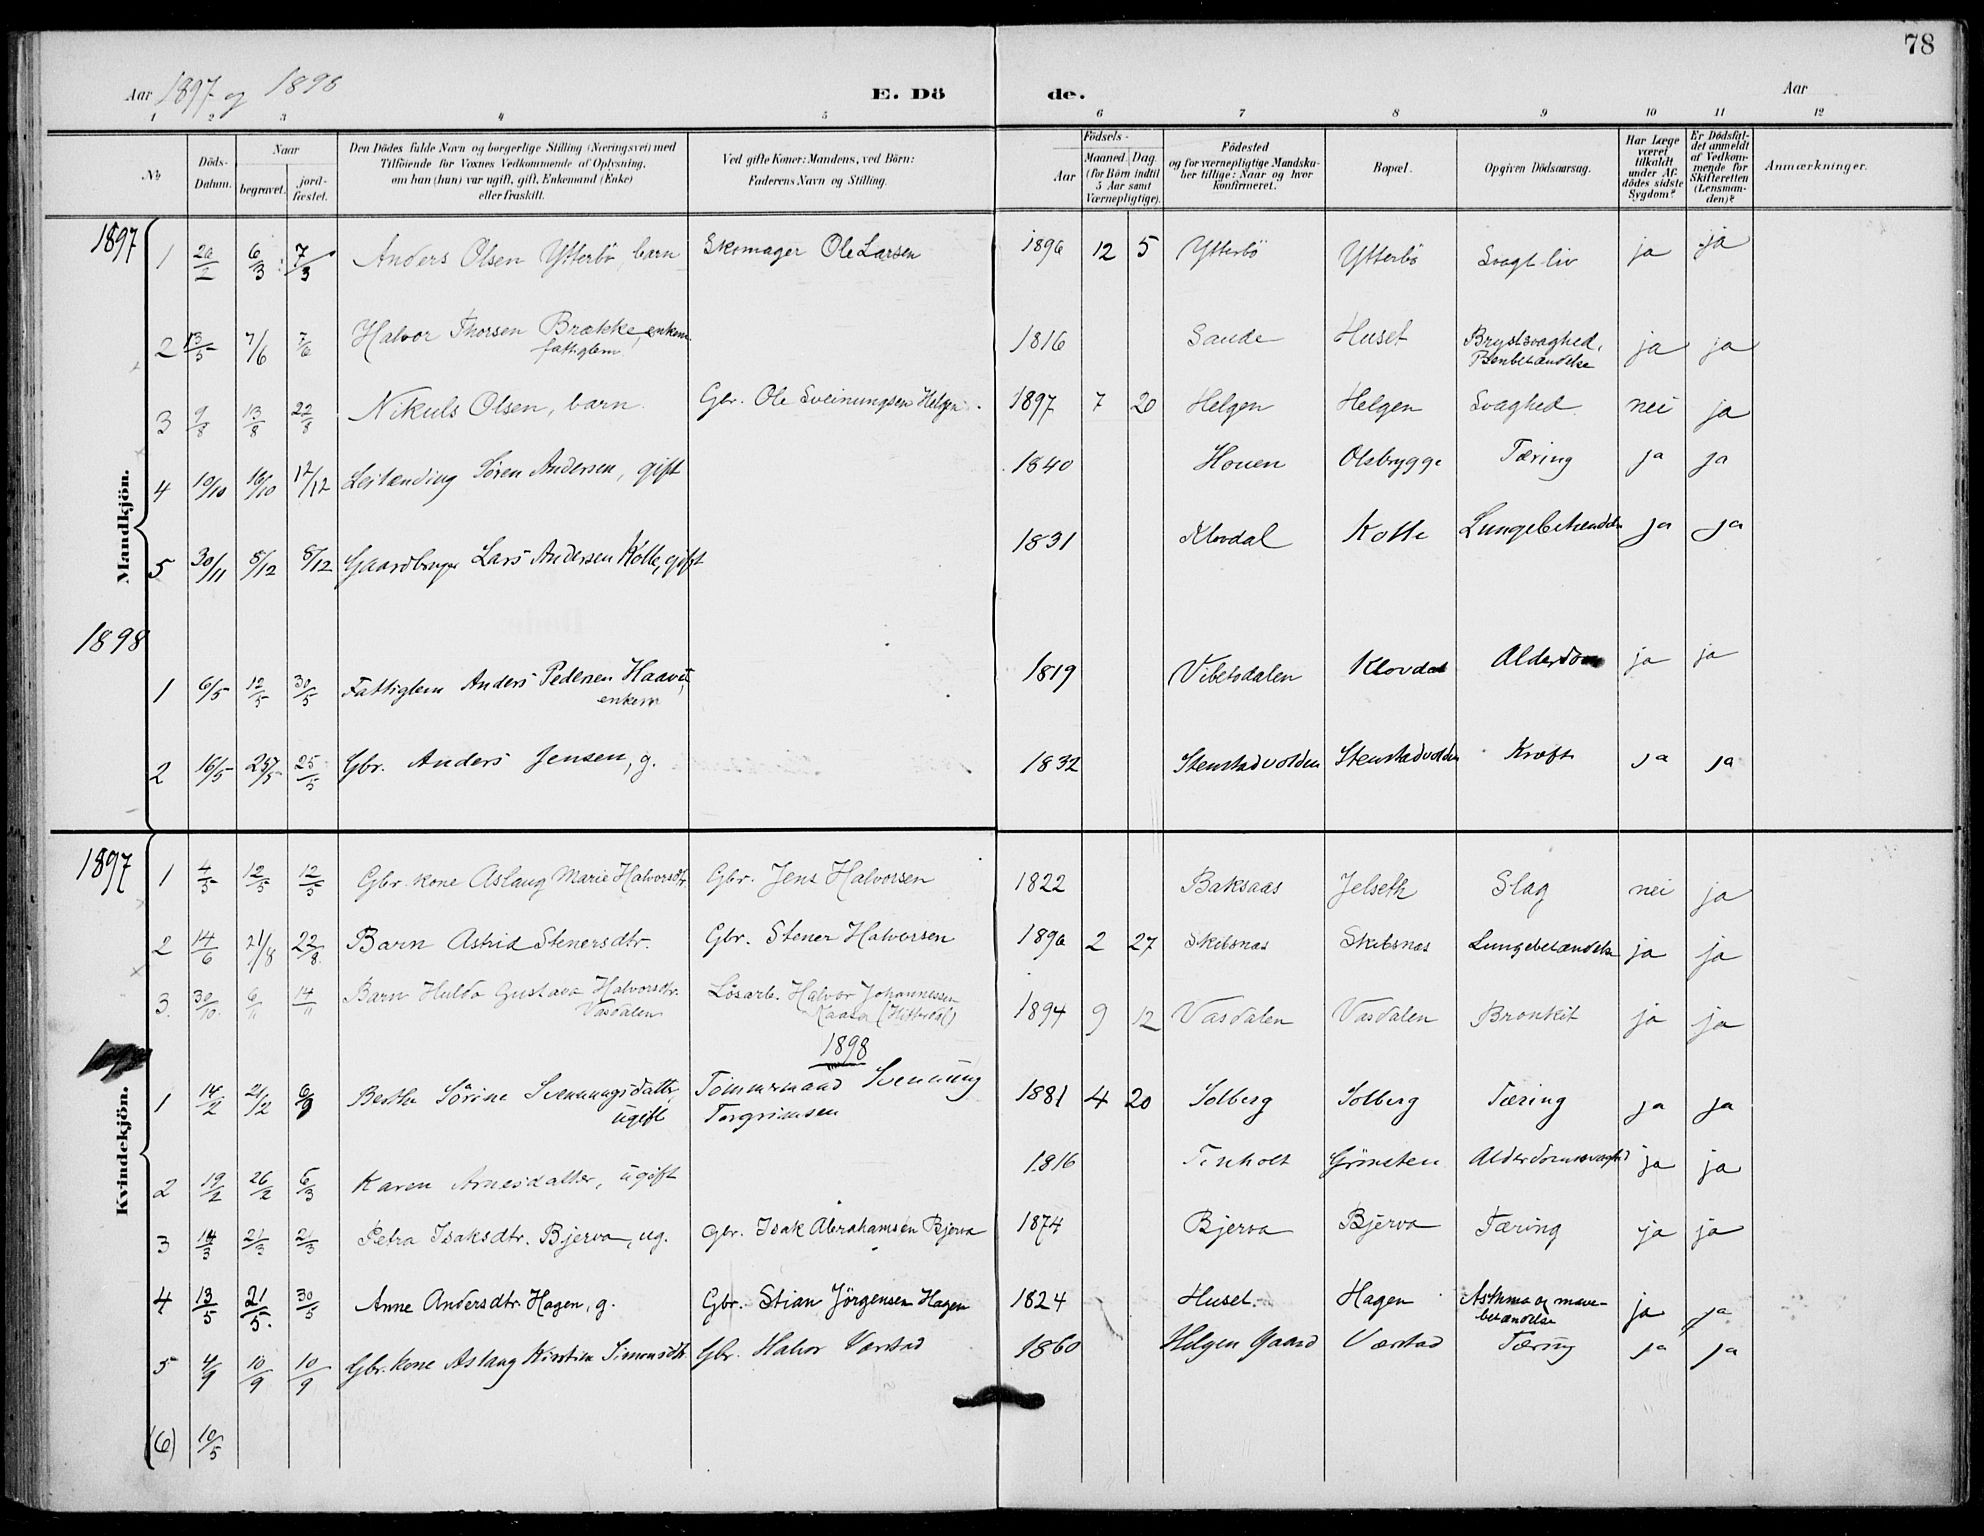 78
Aar 1897 og 1898 E. Dö de. Aar
1 2 3 4 5 6 7 8 9 10 11 12
No Döds-Datum. Naar begravet. jord-fæstet. Den Dödes fulde Navn og borgerlige Stilling (Næringsvei) med Tilföiende for Voxnes Vedkommende af Oplysning, om han (hun) var ugift, gift, Enkemand (Enke) eller fraskilt. Ved gifte Koner: Mandens, ved Börn: Faderens Navn og Stilling. Födsels- Aar Maaned Dag (for Börn indtil 5 Aar samt Værnepligtige). Födested og for værnepligtige Mandska-ber tillige: Naar og hvor konfirmeret. Bopæl. Opgiven Dödsaarsag. Har Læge været tilkaldt under Af-dödes sidste Sygdom? Er Dödsfal-det anmeldt af Vedkom-mende for Skifteretten (Lensman-den)? Anmærkninger.
Mandkjön.
1897
1 6/3 7/3 Anders Olsen Ytterbö, barn Skomager Ole Larsen 1896 12 5 Ytterbö Ytterbö Svagt liv ja ja
2 13/5 7/6 7/6 Halvor Thorsen Brække, enkem. 1816 Saude Huset Brystsvaghed, ja ja
fattiglem Benbetændelse
3 9/8 13/8 22/8 Nikuls Olsen, barn. Gbr. Ole Sveinungsen Helgen. 1897 7 20 Helgen Helgen Svaghed nei ja
4 10/10 16/10 12/12 Leilænding Sören Andersen, gift 1840 Houen Olsbrygge Tæring ja ja
5 30/11 8/12 8/12 Gaardbruger Lars Andersen Kolle, gift 1831 Klovdal Kolle ja ja
1898
1 6/5 12/5 30/5 Fattiglem Anders Pedersen 1819 Vibetodalen Klovdal Alderdom ja ja
enkem
2 16/5 25/5 25/5 Gbr. Anders Jensen, g. 1832 Stenstadvolden Stenstadvolden Kræft ja ja
Kvindekjön.
1897
1 4/5 12/5 12/5 Gbr. kone Aslaug Marie Halvorsdtr. Gbr. Jens Halvorsen 1822 Baksaas Jelseth Slag nei ja
2 14/6 21/8 22/8 Barn Astrid Stenersdtr. Gbr. Stener Halvorsen 1896 2 27 Skibsnæs Skibsnæs Lungebetændelse ja ja
3. 30/10. 6/11 14/11 Barn Hulda Gustava Halvorsdtr. Lösarb. Halvor Johannessen 1894 9 12 Vasdalen Vasdalen Bronkit ja ja
Vasdalen Kaasa (Hitterdal)
1898
1 14/2 21/2 6/3 Berthe Sörine Svennungsdatter, Tömmermand Svennung 1881 4 20 Solberg Solberg Tæring ja ja
ugift Torgrimsen
2 19/2 26/2 6/3 Karen Arnesdatter, ugift 1816 Tinholt Grönsten Alderdomssvaghed ja ja
3 14/3 21/3 21/3 Petra Isaksdtr. Bjerva, ug. Gbr. Isak Abrahamsen Bjerva 1874 Bjerva Bjerva Tæring ja ja
4 13/5 21/5. 30/5 Anne Andersdtr. Hagen, g. Gbr. Stian Jörgensen Hagen 1824 Huset. Hagen Asthma og mave- ja ja
betændelse
5 4/9 10/9 10/9 Gbr. kone Aslaug Kirstine Simonsdtr Gbr. Halvor Værstad 1860 Helgen Gaard Værstad Tæring ja ja
(6) 10/5